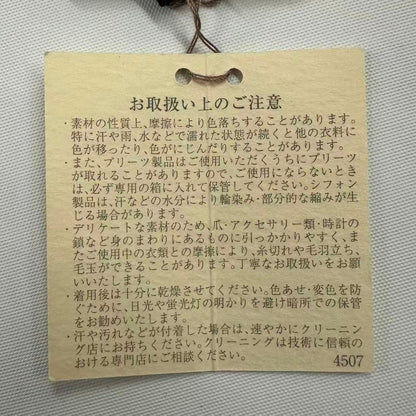 お取扱い上のご注意
・素材の性質上、摩擦により色落ちすることがあります。
特に汗や雨、水などで濡れた状態が続くと他の衣料に
色が移ったり、色がにじんだりすることがあります。
・また、プリーツ製品はご使用いただくうちにプリーツ
が取れることがありますので、ご使用にならないとき
は、必ず専用の箱に入れて保管してください。シフォン
製品は、汗などの水分により輪染み・部分的な縮みが生
じる場合があります。
・デリケートな素材のため、爪・アクセサリー類・時計の
鎖など身のまわりにあるものに引っかかりやすく、ま
たご使用中の衣類との摩擦により、糸切れや毛羽立ち、
毛玉ができることがあります。丁寧なお取扱いをお願
いいたします。
・着用後は十分に乾燥させてください。色あせ・変色を防
ぐために、日光や蛍光灯の明かりを避け暗所での保管
をお勧めいたします。
・汗や汚れなどが付着した場合は、速やかにクリーニン
グ店にお持ちください。クリーニングは技術に信頼の
おける専門店にご相談ください。
4507